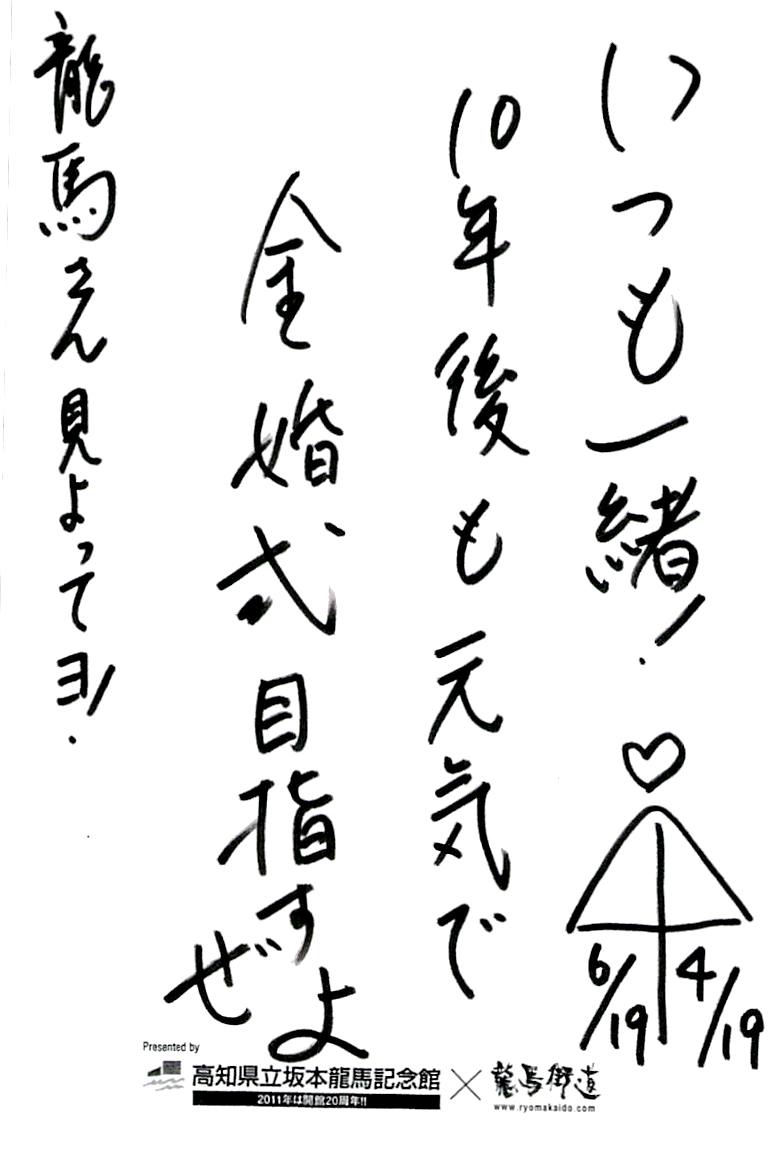 いつも一緒!
♡
6/19 4/19
10年後も元気で
金婚式目指すよ
ぜ
龍馬さん見よってヨ!
Presented by
高知県立坂本龍馬記念館 × 龍馬街道
2011年は開館20周年!!
www.ryomakaido.com